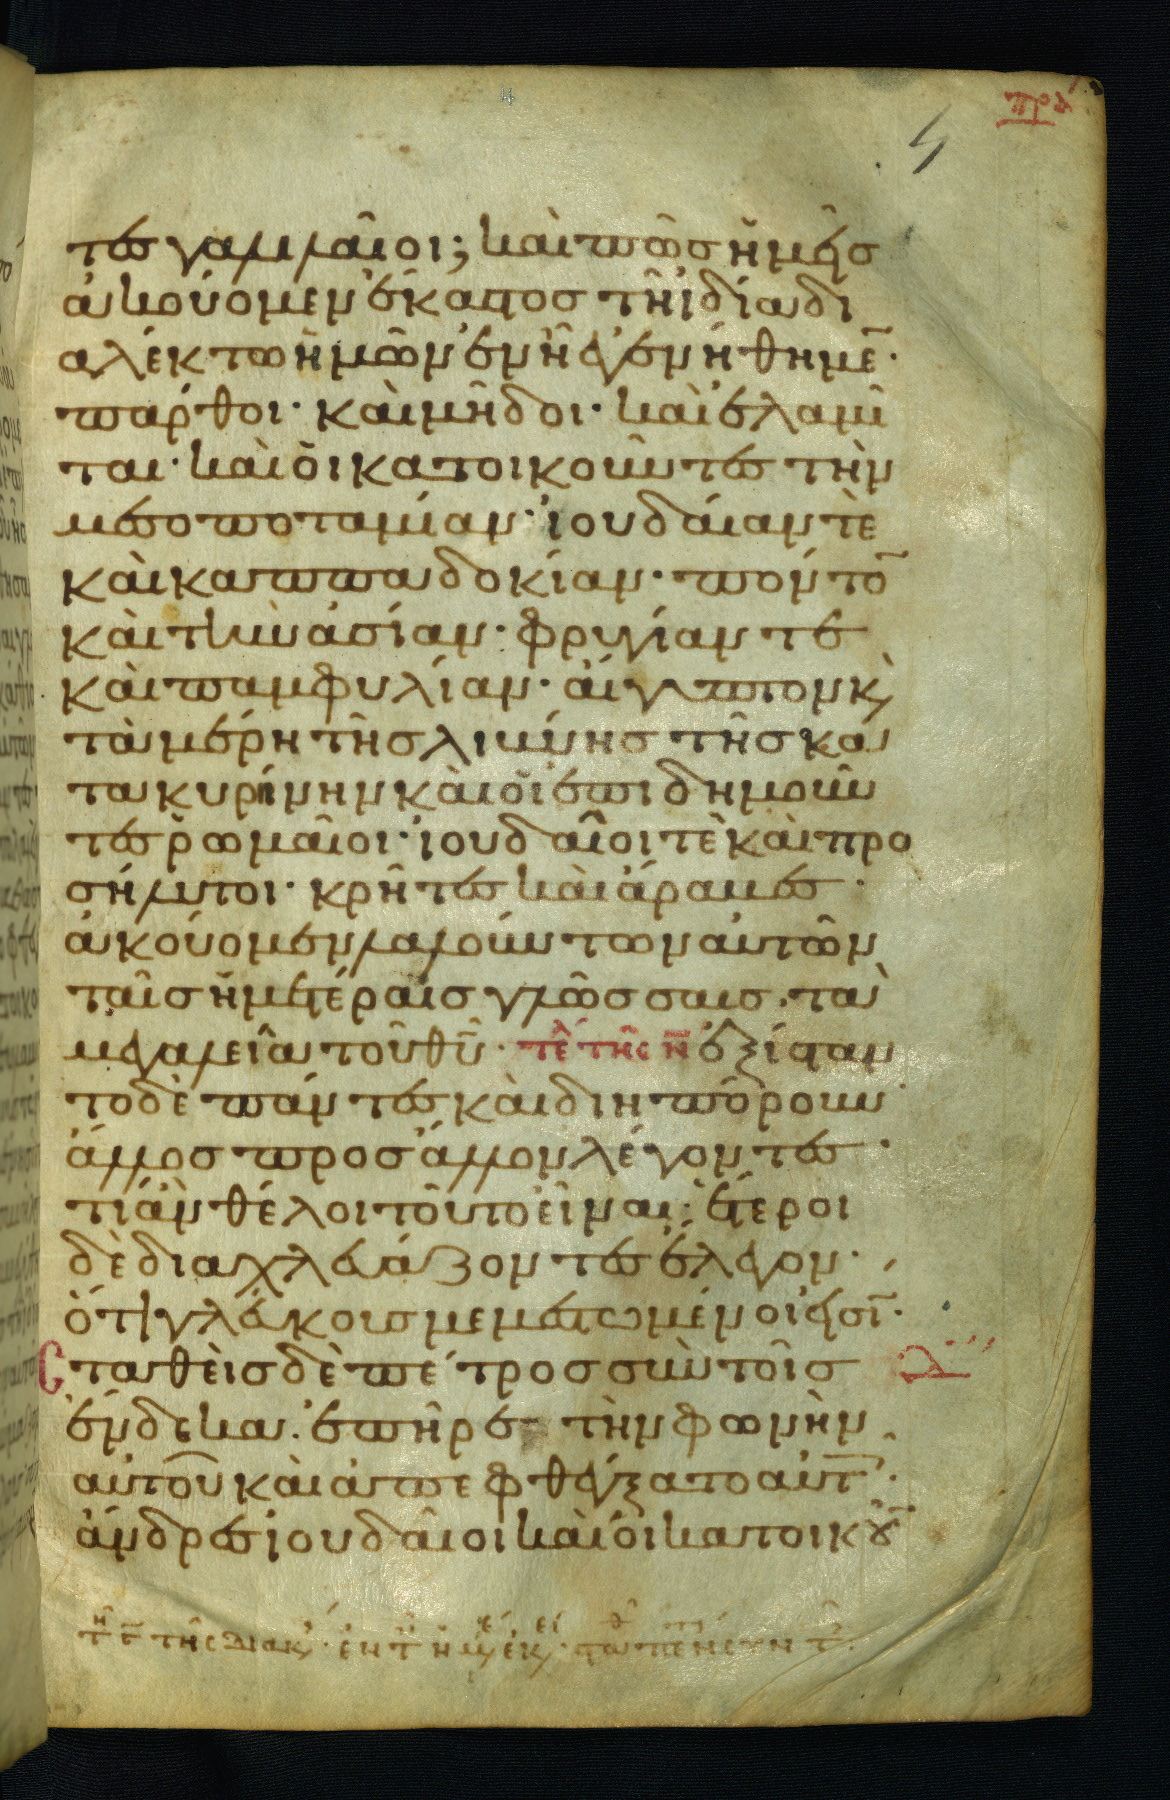 πρα
4
τες γαλιλαῖοι; καὶ πῶς ἡμεῖς
ἀκούομεν ἕκαστος τῇ ἰδίᾳ δι
αλέκτω ἡμῶν ἐν ᾗ ἐγεννήθημε̄·
πάρθοι· καὶ μῆδοι· καὶ ἐλαμῖ
ται· καὶ οἱ κατοικοῦντες τὴν
μεσοποταμίαν· ἰουδαίαν τὲ
καὶ καππαδοκίαν· πόντο̄
καὶ τὴν ἀσίαν· φρυγίαν τε
καὶ παμφυλίαν· αἴγυπτον κ̀
τὰ μέρη τῆς λιμύης τῆς κα
τα κυρίνην καὶ οἱ ἐπιδημοῦν
τες ῥωμαῖοι· ἰουδαῖοι τὲ καὶ προ
σήλυτοι· κρῆτες καὶ ἄραμες·
ἀκούομεν λαλούντων αὐτῶν
ταῖς ἡμετέραις γλώσσαις· τὰ
μεγαλεῖα τοῦ θῦ· τε̄λ τῆς ν̄ ἐξίσταν
το δὲ πάντες καὶ διηπόρουν
ἄλλος προς ἄλλον λέγοντες·
τί ἂν θέλοι τοῦτο εἶναι· ἕτεροι
δὲ διαχλεάζοντες ἔλεγον·
ὅτι γλεύκους μεμεστωμένοι εἰσί̄·
Σταθεὶς δὲ πέτρος σὺν τοῖς
ἕνδεκα· ἐπῆρε τὴν φωνὴν
αὐτοῦ καὶ ἀπεφθέγξατο αὐτ̄·
ἄνδρες ἰουδαῖοι καὶ οἱ κατοικοῦ̄